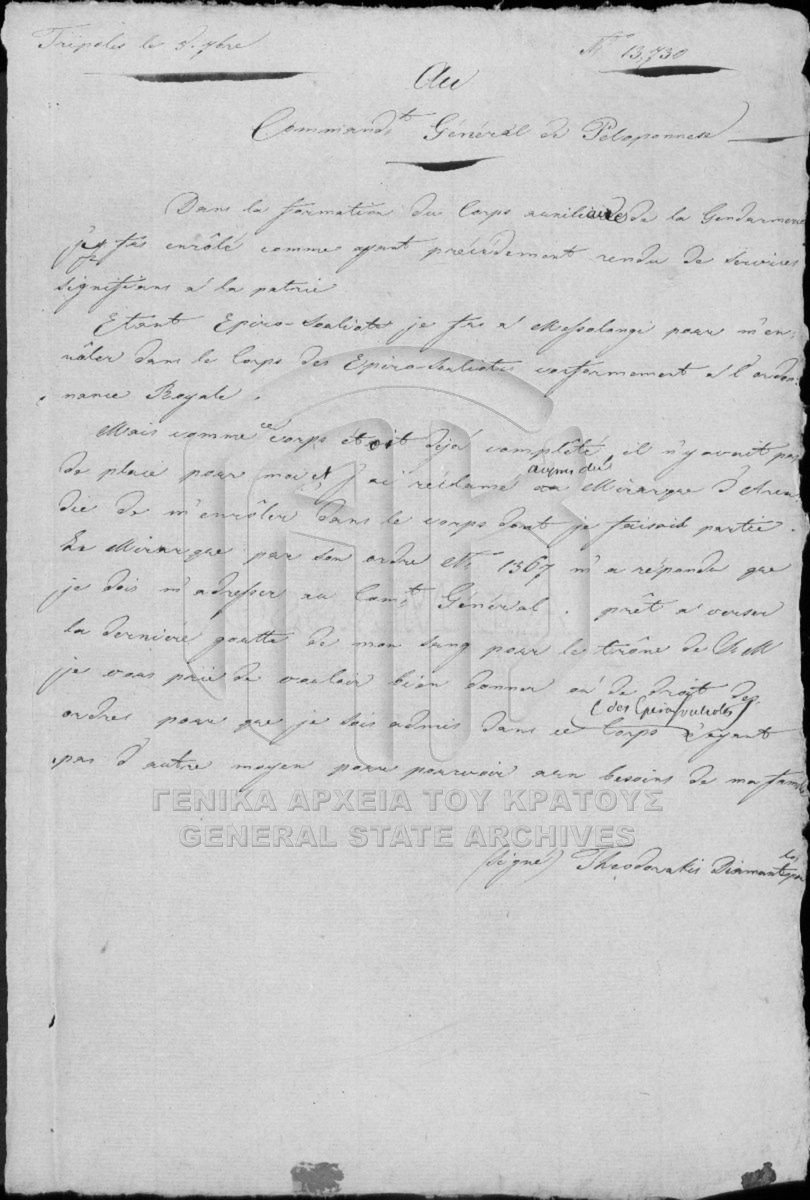 Tripolis le 5. 7bre
N° 13,730
Au
Commandt Général de Péloponnese
Dans la formation du Corps auxiliaires de la Gendarmerie
je fus enrôlé comme ayant précédemment rendu de services
signifians à la patrie
Etant Epiro-Souliote je fus à Messolongi pour m'en-
rôler dans le Corps des Epiro-Souliotes conformement à l'ordon-
nance Royale.
Mais comme ce corps étoit déjà complêté, il n'y avait pas
de place pour moi et j'ai réclamé du Mirarque d'Arca
die de m'enrôler dans le corps dont je faisoit partie.
Le Mirarque par son ordre N° 1367 m'a répondu que
je dois m'adresser au Comt Général. prêt à verser
la dernière goutte de mon sang pour le trône de S M
je vous prie de vouloir bien donner où de droit des
ordres pour que je sois admis dans ce Corps (des Epirosouliotes) n'ayant
pas d'autre moyen pour pourvoir aux besoins de ma famille
(signé) Theodorakis Diamantopoulos
ΓΕΝΙΚΑ ΑΡΧΕΙΑ ΤΟΥ ΚΡΑΤΟΥΣ
GENERAL STATE ARCHIVES